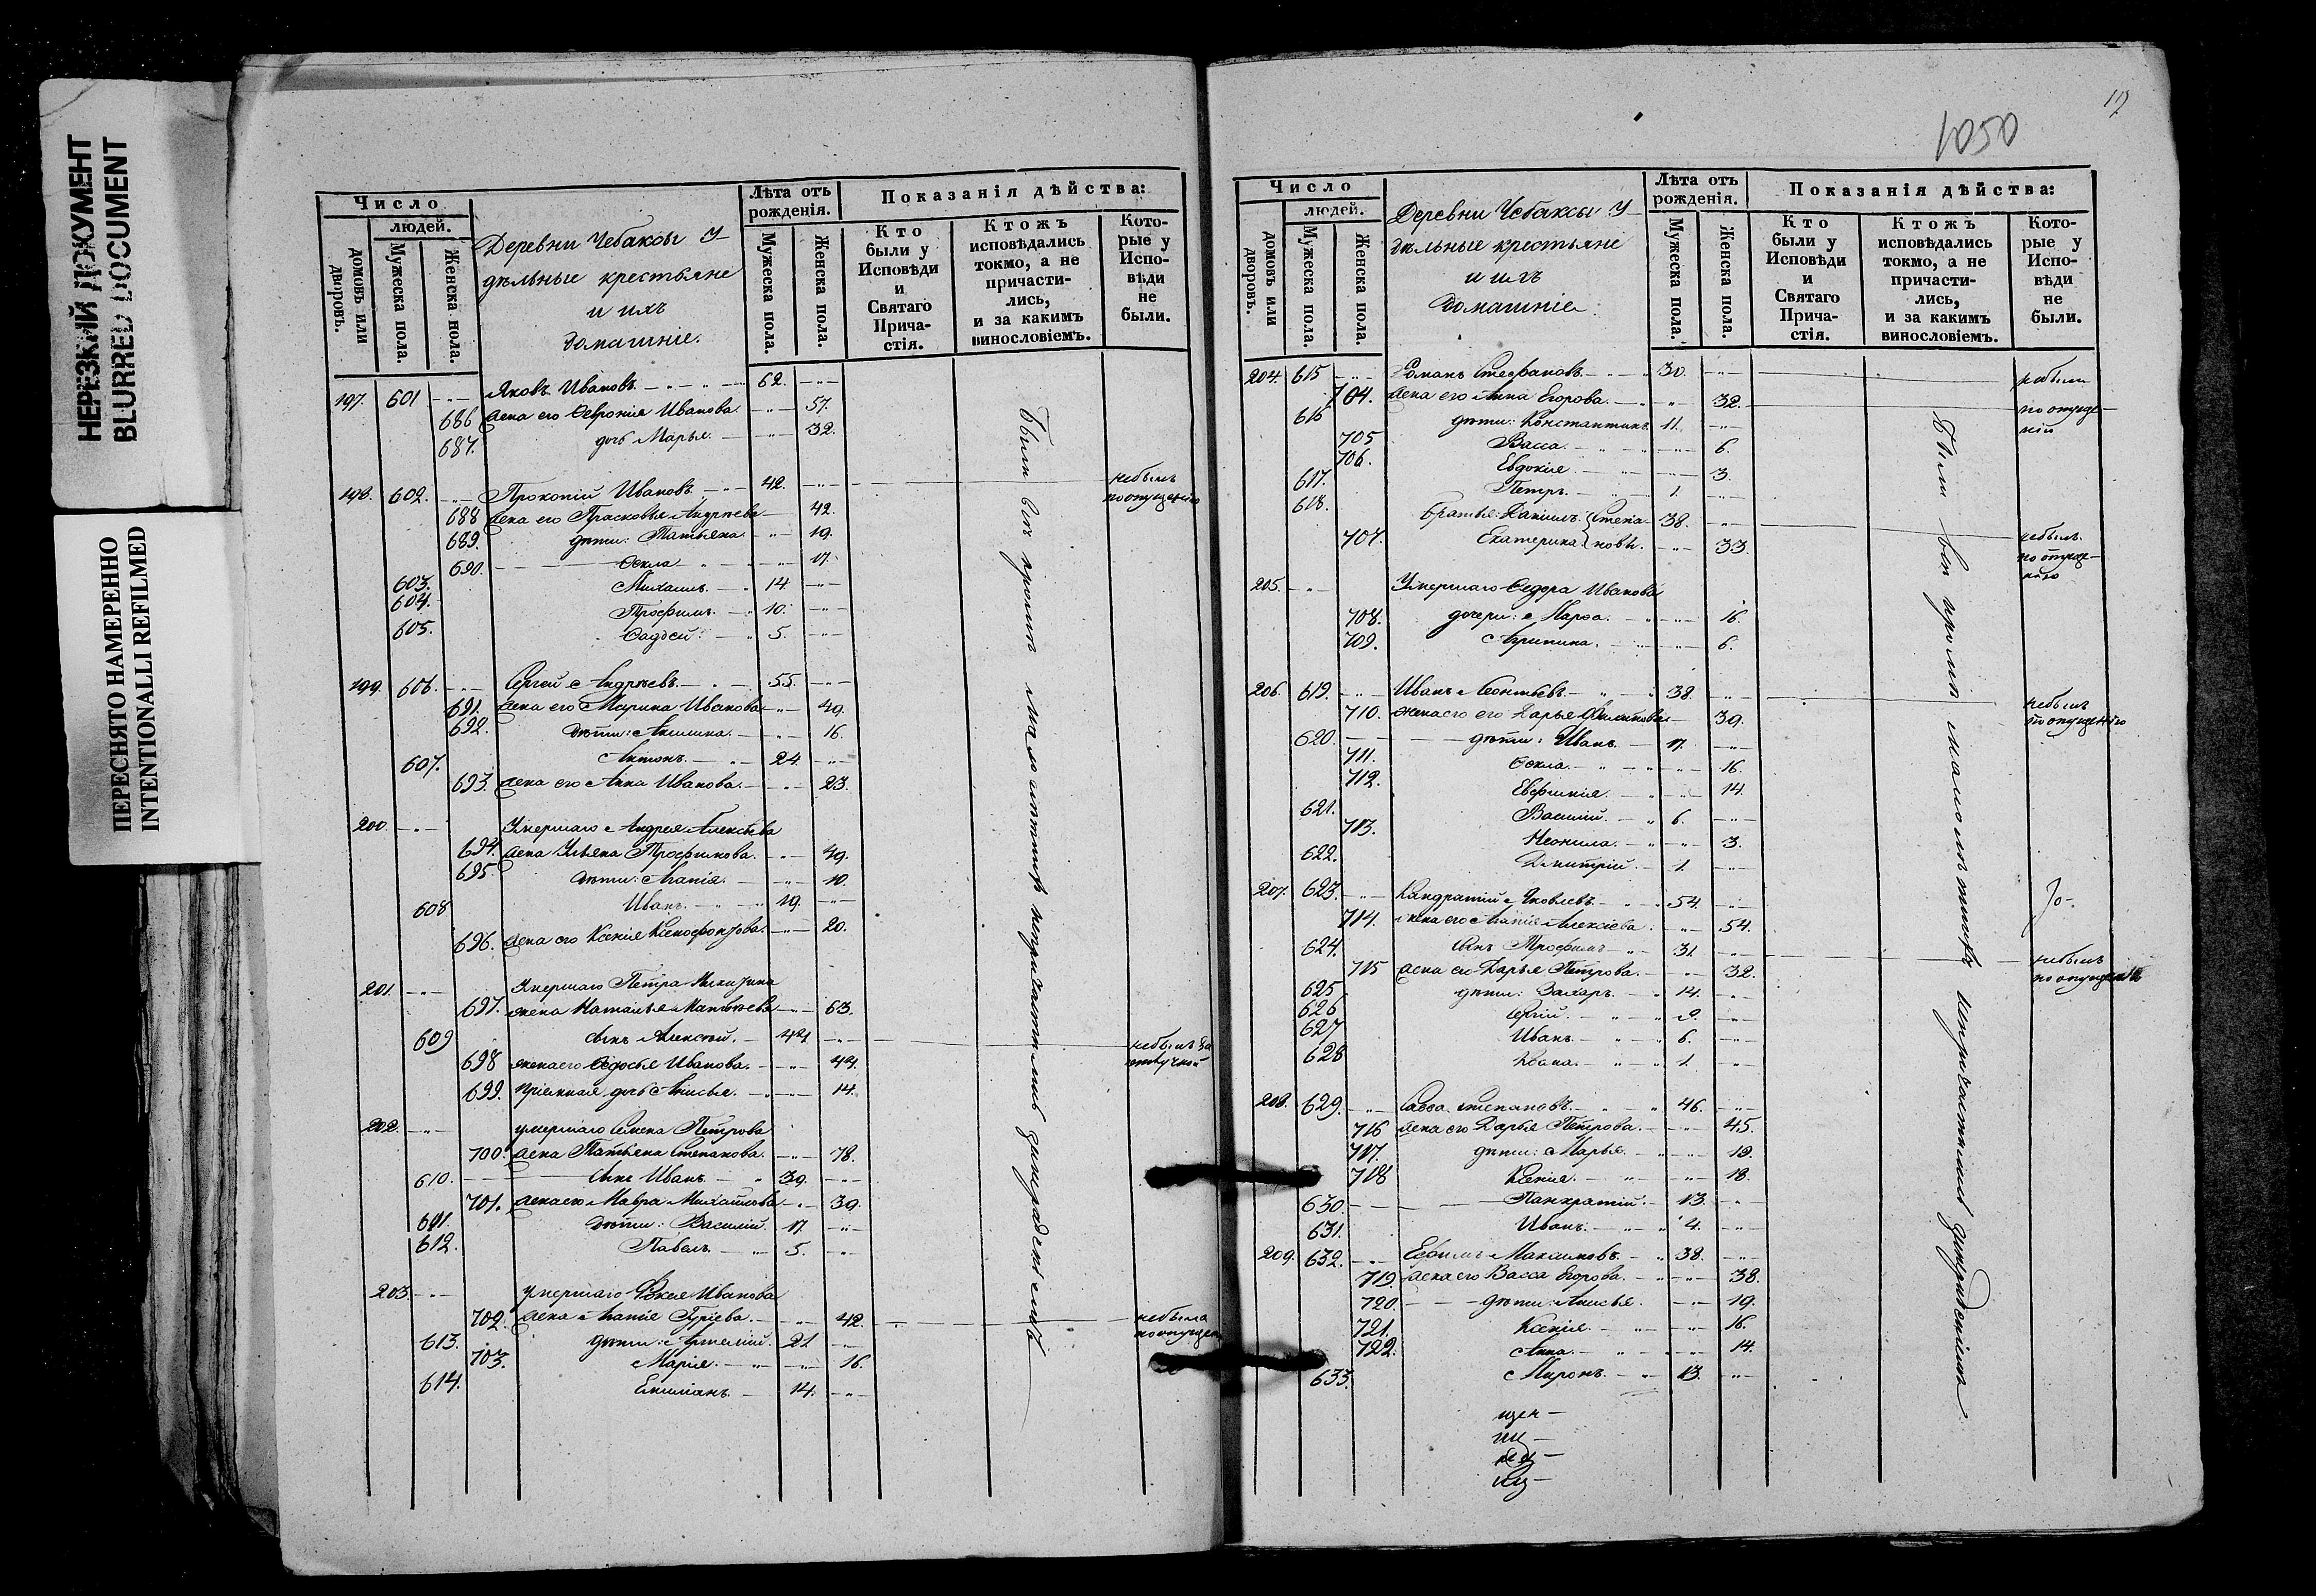 НЕРЕЗКИЙ ДОКУМЕНТ
BLURRED DOCUMENT
ПЕРЕСНЯТО НАМЕРЕННО
INTENTIONALLI REFILMED
Число
людей.
домовъ или дворовъ.
Мужеска пола.
Женска пола.
Деревни Чебаксы У-
дѣльные крестьяне
и ихъ
домашніе.
Лѣта отъ рожденія.
Мужеска пола.
Женска пола.
Показанія дѣйства:
Кто были у Исповѣди и Святаго Прича-стія.
Ктожъ исповѣдались токмо, а не причасти-лись, и за какимъ винословіемъ.
Кото-рые у Испо-вѣди не были.
197. 601 Яковъ Ивановъ 62.
686 Жена его Ѳевронія Иванова 57.
687. дочь Марья 32.
198. 602. Прокопій Ивановъ 42. небылъ по опущенію
688 Жена его Прасковья Андреева 42.
689. дѣти: Татьяна 19.
690. Ѳекла 17.
603. Михаилъ 14
604. Трофимъ 10.
605. Ѳаддей 5.
199. 606. Сергей Андреевъ 55.
691. Жена его Марина Иванова 49.
692. дѣти: Акилина 16.
607. Антонъ 24.
693. Жена его Анна Иванова 23.
200. Умершаго Андрея Алексѣева
694. Жена Ульяна Трофимова. 49.
695 дѣти: Агапія 10.
608 Иванъ 19.
696. Жена его Ксенія Ксенофонтова. 20.
201. Умершаго Петра Никитина
697. жена Наталья Матвѣева 63.
609 сынъ Алексѣй. 44 небылъ за отлучкой
698 жена его Ѳедосья Иванова. 44.
699. пріемная дочь Анисья. 14.
202. умершаго Семена Петрова
700. Жена Татьяна Степанова. 78.
610. Сынъ Иванъ 39.
701. Жена его Мавра Михайлова 39.
611. дѣти: Василій. 17.
612. Павелъ 5.
203. умершаго Фокея Иванова
702. Жена Агапія Гуріева. 42. небыла по опущен
613. дѣти: Артемій. 21
703. Марія. 16.
614. Емиліанъ 14.
Были всѣ кромѣ малолѣтнихъ
117
1050
Число
людей.
домовъ или дворовъ.
Мужеска пола.
Женска пола.
Деревни Чебаксы У-
дѣльные крестьяне
и ихъ
домашніе
Лѣта отъ рожденія.
Мужеска пола.
Женска пола.
Показанія дѣйства:
Кто были у Исповѣди и Святаго Прича-стія.
Ктожъ исповѣдались токмо, а не причасти-лись, и за какимъ винословіемъ.
Кото-рые у Испо-вѣди не были.
204. 615 Романъ Стефановъ 30. небыли
704. Жена его Анна Егорова. 32. по опуще-
616 дѣти: Константинъ 11. нію
705 Васса 6.
706. Евдокія 3.
617. Петръ 1.
618. братья: Даніилъ Степа- 38.
707. Екатерина новы. 33. небылъ по опуще-нію
205. Умершаго Ѳедора Иванова
708. дочери: Марѳа. 16.
709. Агрипина. 6.
206 619. Иванъ Леонтьевъ 38. небылъ по опущенію
710. жена его Дарья 39.
620. дѣти: Иванъ 17.
711. Ѳекла 16.
712. Евфимія. 14.
621. Василій 6.
713. Неонила 3.
622. Димитрій 1.
207. 623. Кандратій Яковлевъ 54.
714. жена его Агапія Алексіева 54.
624. сынъ Трофимъ 31. небылъ по опущенію
715 жена его Дарья Петрова. 32.
625 дѣти: Захаръ 14.
626 Сергій 9.
627 Иванъ 6.
628 1.
208. 629. Савва Степановъ 46.
716 Жена его Дарья Петрова. 45.
717. дѣти: Марья 19.
718 Ксенія 18.
630. Панкратій 13.
631. Иванъ 4.
209. 632. Ефимъ Максимовъ 38.
719. Жена его Васса Егорова. 38.
720. дѣти: Анисья. 19.
721. Ксенія 16.
722. Анна 14.
633. Миронъ 13.
Были всѣ кромѣ малолѣтнихъ